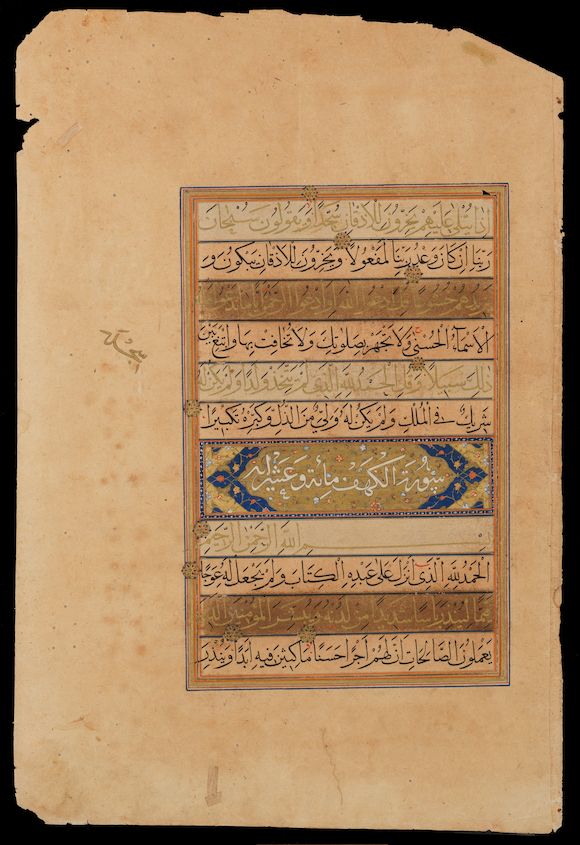 اِذَا يُتْلٰى عَلَيْهِمْ يَخِرُّونَ لِلْاَذْقَانِ سُجَّدًا وَيَقُولُونَ سُبْحَانَ
رَبِّنَا اِنْ كَانَ وَعْدُ رَبِّنَا لَمَفْعُولًا وَيَخِرُّونَ لِلْاَذْقَانِ يَبْكُونَ وَ
يَزِيدُهُمْ خُشُوعًا قُلِ ادْعُوا اللّٰهَ اَوِ ادْعُوا الرَّحْمٰنَ اَيًّامَا تَدْعُوا فَلَهُ
الْاَسْمَآءُ الْحُسْنٰى وَلَا تَجْهَرْ بِصَلٰوتِكَ وَلَا تُخَافِتْ بِهَا وَابْتَغِ بَيْنَ
ذٰلِكَ سَبِيلًا وَقُلِ الْحَمْدُ لِلّٰهِ الَّذِى لَمْ يَتَّخِذْ وَلَدًا وَلَمْ يَكُنْ لَهُ
شَرِيكٌ فِى الْمُلْكِ وَلَمْ يَكُنْ لَهُ وَلِىٌّ مِنَ الذُّلِّ وَكَبِّرْهُ تَكْبِيرًا
سجدة
سورة الكهف مائة وعشر اية
بِسْمِ اللّٰهِ الرَّحْمٰنِ الرَّحِيمِ
الْحَمْدُ لِلّٰهِ الَّذِى اَنْزَلَ عَلٰى عَبْدِهِ الْكِتَابَ وَلَمْ يَجْعَلْ لَهُ عِوَجًا
قَيِّمًا لِيُنْذِرَ بَاْسًا شَدِيدًا مِنْ لَدُنْهُ وَيُبَشِّرَ الْمُؤْمِنِينَ الَّذِينَ
يَعْمَلُونَ الصَّالِحَاتِ اَنَّ لَهُمْ اَجْرًا حَسَنًا مَاكِثِينَ فِيهِ اَبَدًا وَيُنْذِرَ